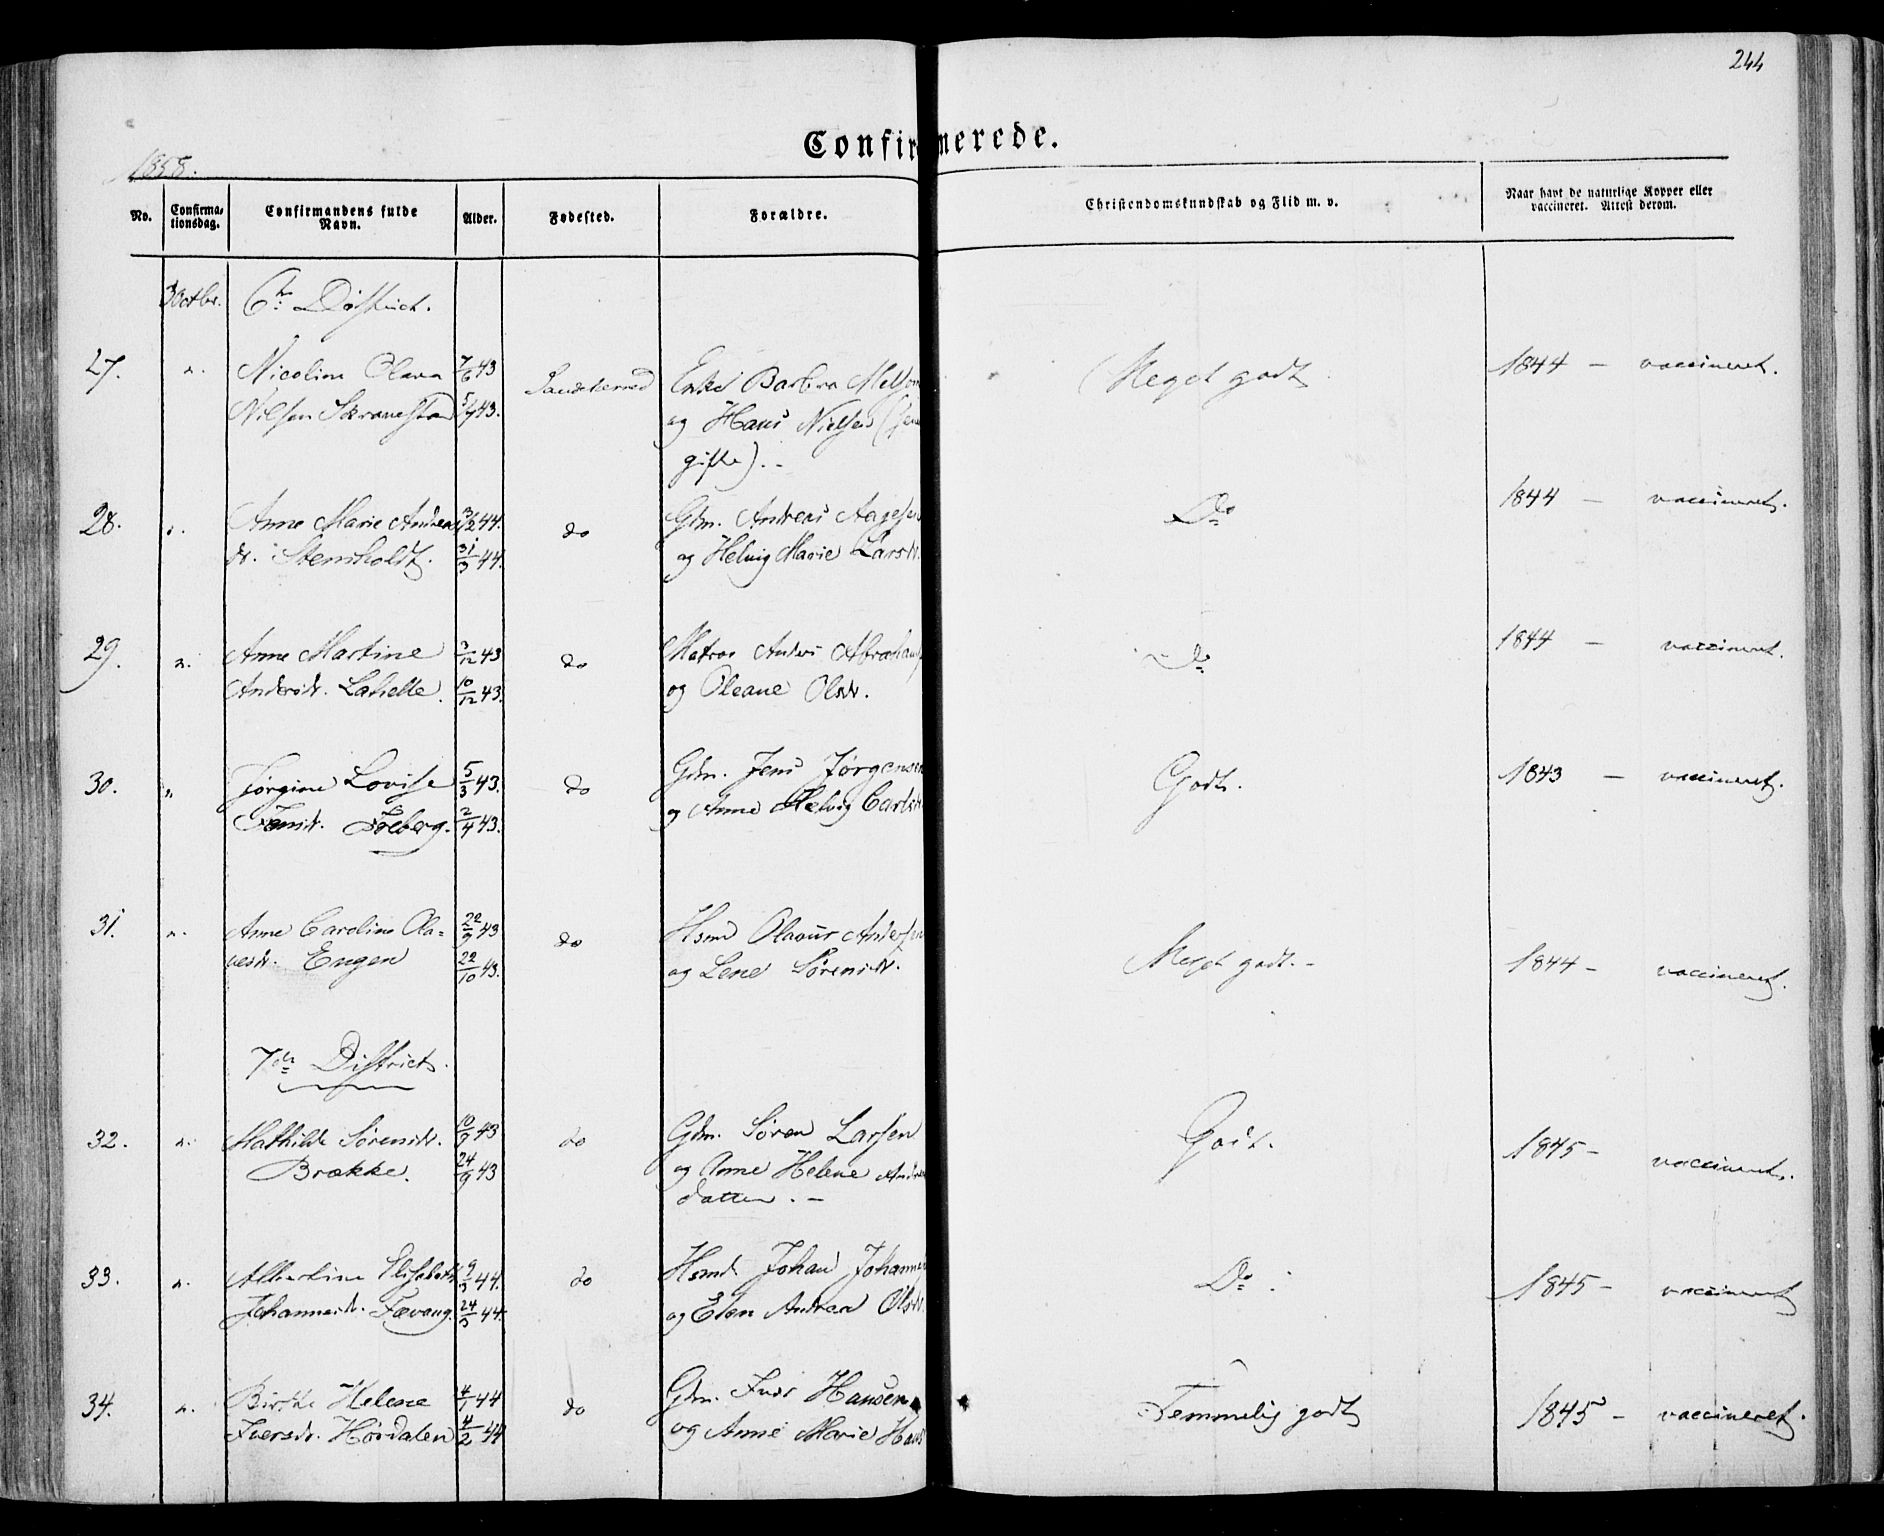 244
Confirmerede.
1858.
No.
Confirma-
tionsdag.
Confirmandens fulde
Navn.
Alder.
Fødested.
Forældre.
Christendomskundskab og Flid m. v.
Naar havt de naturlige Kopper eller
vaccineret. Attest derom.
3 Octbr. 6te District.
27. " Nicoline Olava 7/6 43 Sandeherred Enke Barbra Meget godt 1844 — vaccineret.
Nilsen 5/9 43. og Hans Nielsen
gifte).-
28. " Anne Marie 3/2 44. do Gdm. Andreas Aagesen Do 1844 — vaccineret.
dr. Stensholdt. 31/3 44. og Helvig Marie Larsdr.
29. " Anne Martine 3/12 43 do Matros Anders Do 1844 — vaccineret.
Andersdr. Lahelle. 10/12 43. og Oleane Olsdr.
30. " Jørgine Lovise 5/3 43. do Gdm. Jens Jørgensen Godt. 1843 — vaccineret.
Jensdr. 2/4 43. og Anne Helvig Carlsdr
31. " Anne Caroline Ola- 22/9 43 do Hsmd Olavus Andersen Meget godt.- 1844 – vaccineret.
vesdr. Engen 22/10 43. og Lene Sørensdr.
7de District.
32. " Mathilde Sørensdr. 10/9 43 do Gdm. Søren Larsen Godt. 1845 – vaccineret.
Brække. 24/9 43 og Anne Helene
datter. –
33. " Albertine Elisabeth 9/3 44. do Hsmd. Johan Do 1845 – vaccineret
Johannesdr. Fevang. 24/3 44. og Elen Andrea Olsdr.
34. " Birthe Helene 4/1 44 do Gdm. Iver Hansen Temmelig godt 1845 – vaccineret.
Iversdr. Hørdalen 4/2 44 og Anne Marie Hans